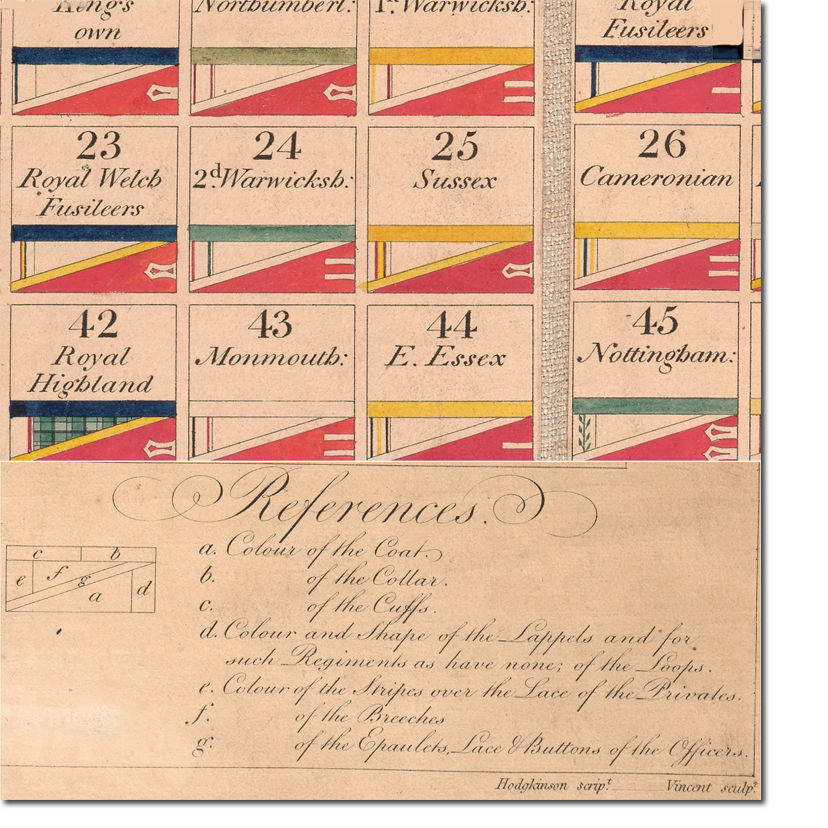 King's
own
Northumberl:
1st Warwicksh:
Royal
Fusileers
23
Royal Welch
Fusileers
24
2d Warwicksh:
25
Sussex
26
Cameronian
42
Royal
Highland
43
Monmouth:
44
E. Essex
45
Nottingham:
References.
c b
e f g d
a
a. Colour of the Coat.
b. of the Collar.
c. of the Cuffs.
d. Colour and Shape of the Lappels and for
such Regiments as have none; of the Loops.
e. Colour of the Stripes over the Lace of the Privates.
f. of the Breeches
g. of the Epaulets, Lace & Buttons of the Officers.
Hodgkinson scrip.t Vincent sculp.t